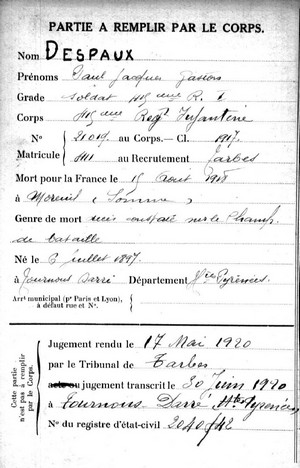 PARTIE A REMPLIR PAR LE CORPS.
Nom DESPAUX
Prénoms Paul Jacques Gaston
Grade soldat 115 eme R. I
Corps 115 eme Regt Infanterie
N° 21019 au Corps. — Cl. 1917.
Matricule 1111 au Recrutement Tarbes
Mort pour la France le 15 Aout 1918
à Moreuil (Somme)
Genre de mort décès constaté sur le Champ
de bataille
Né le 3 juillet 1897.
à Tournous Darré Département Htes Pyrénées.
Arrt municipal (pr Paris et Lyon), à défaut rue et N°.
Cette partie n'est pas à remplir par le Corps.
Jugement rendu le 17 Mai 1920
par le Tribunal de Tarbes
acte ou jugement transcrit le 30 Juin 1920
à Tournous-Darré, Htes Pyrénées
N° du registre d'état-civil 2040/42